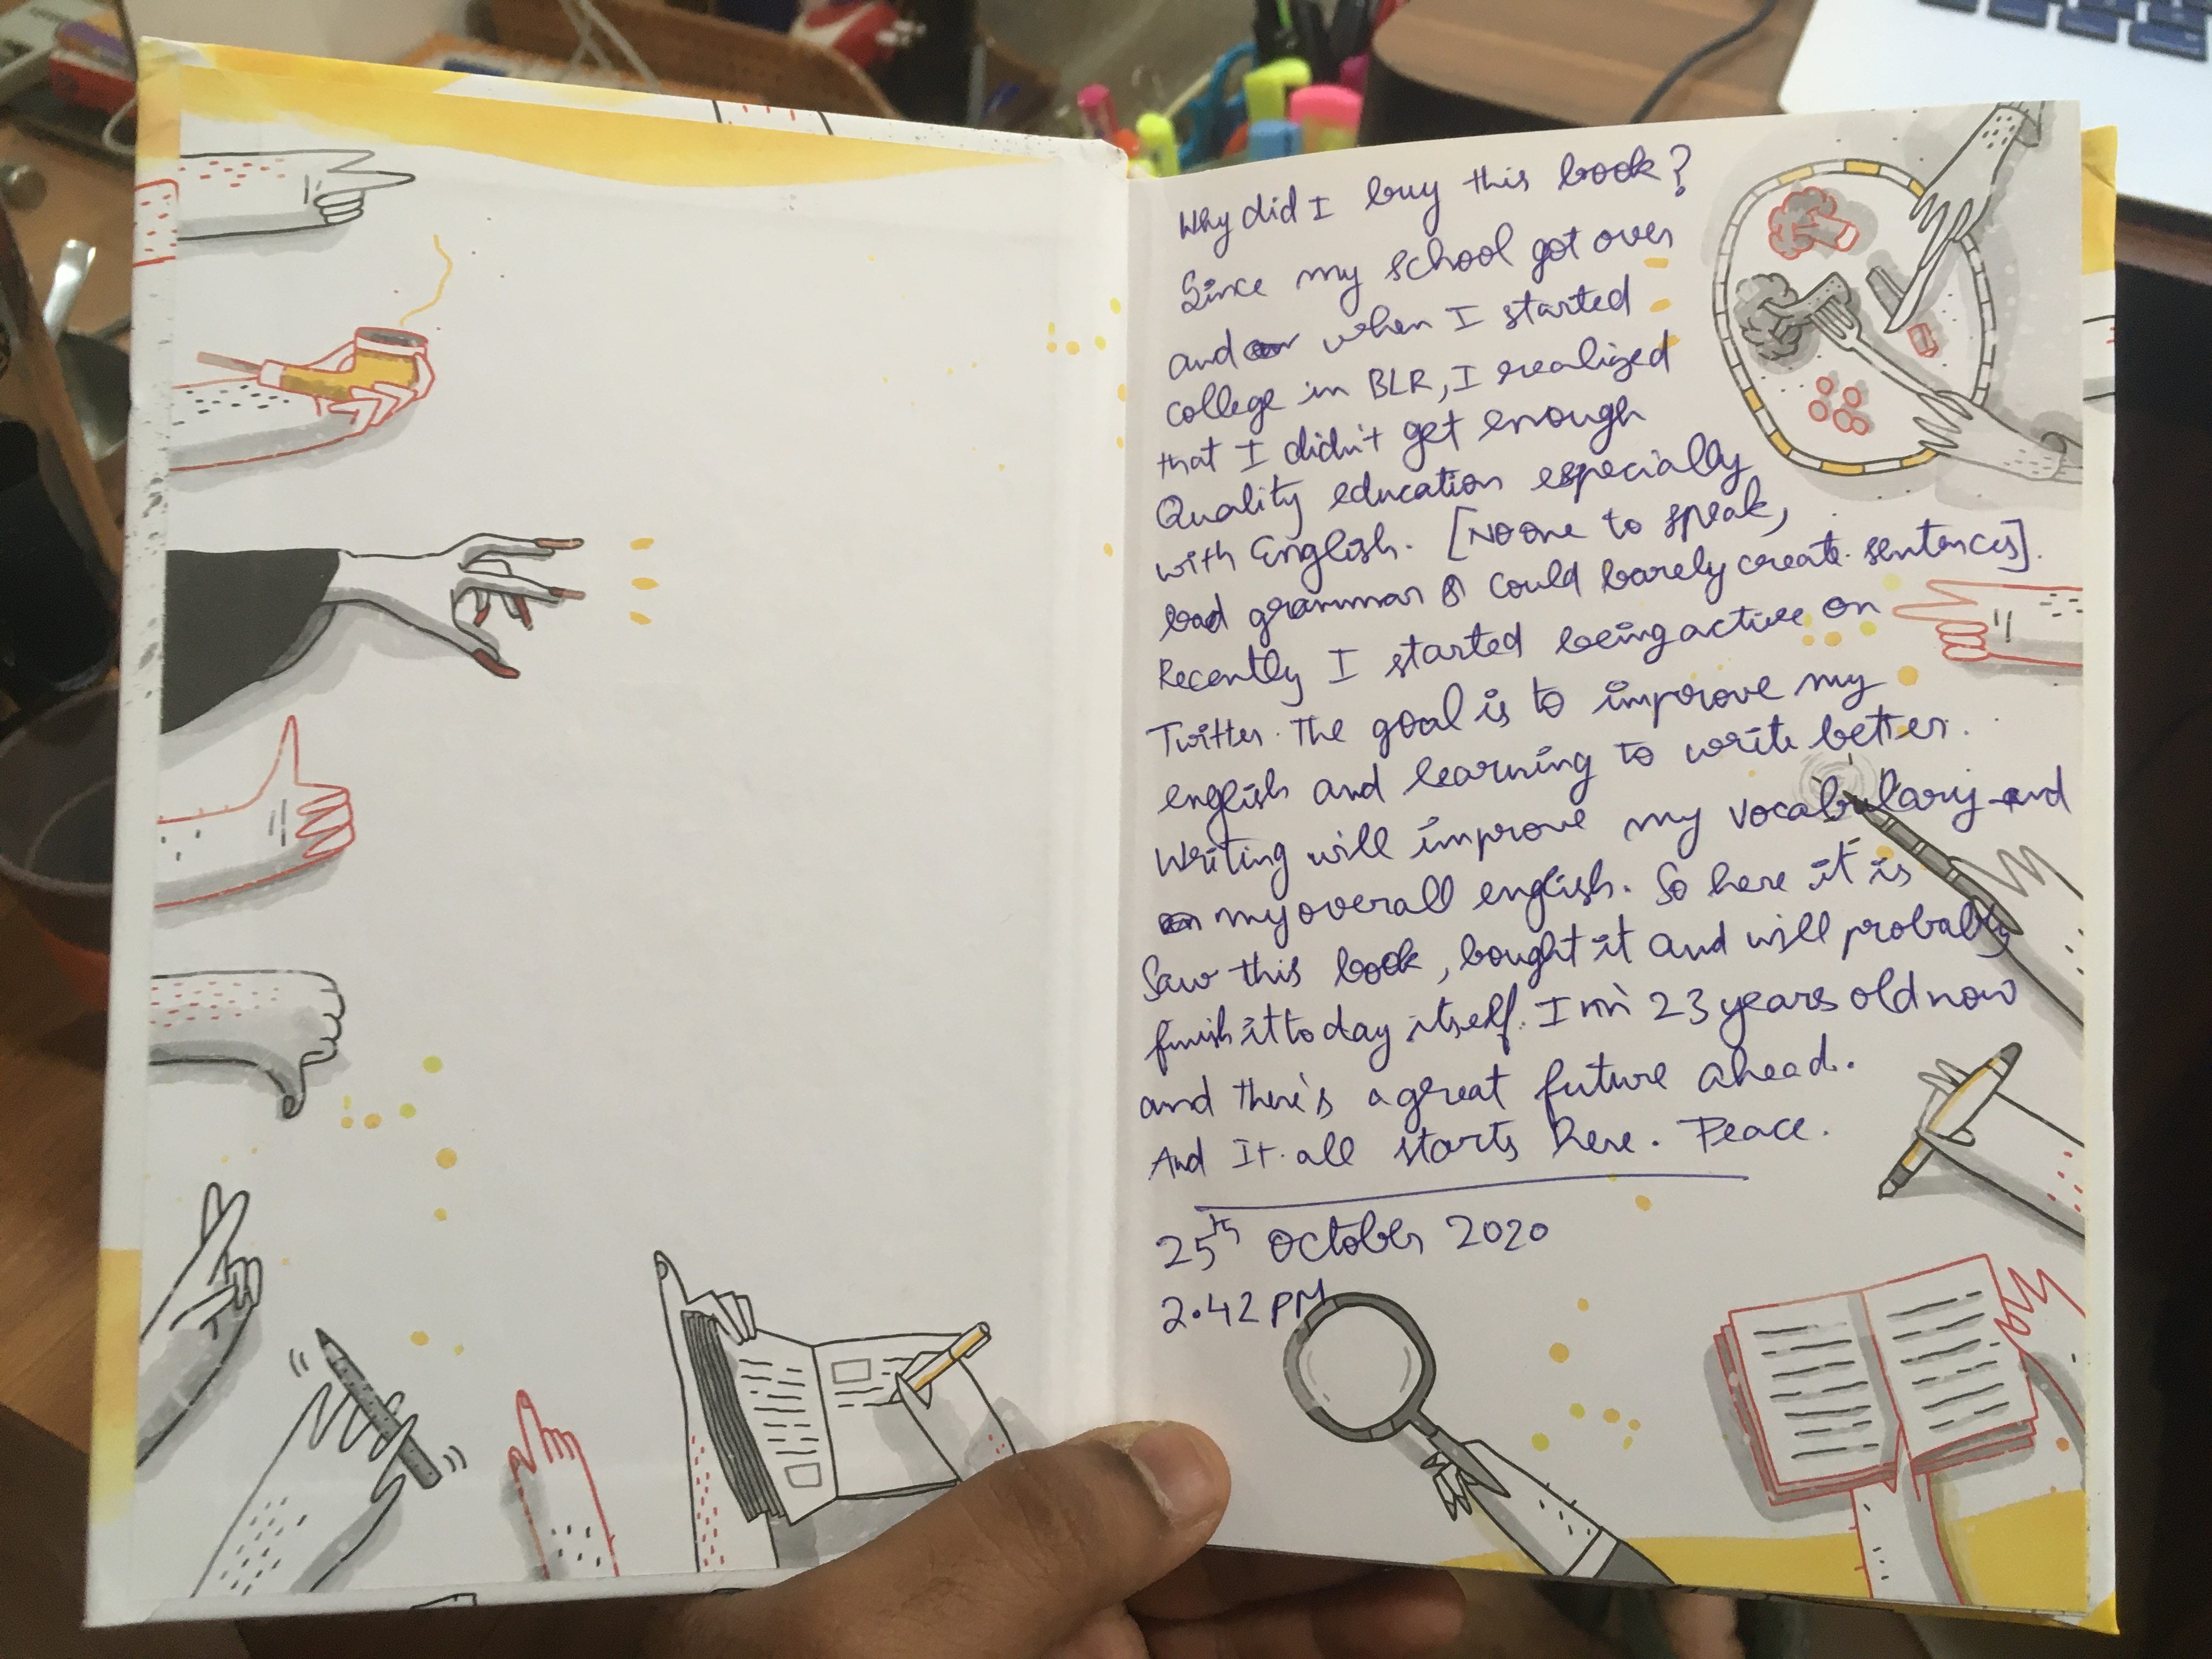 Why did I buy this book?
Since my school got over
and when I started
college in BLR, I realized
that I didn't get enough
Quality education especially
with English. [No one to speak,
bad grammar & could barely create sentences].
Recently I started being active on
Twitter. The goal is to improve my
english and learning to write better.
Writing will improve my vocabulary and
my overall english. So here it is
Saw this book, bought it and will probably
finish it today itself. I'm 23 years old now
and there's a great future ahead.
And It all starts here. Peace.
25th October 2020
2.42 PM